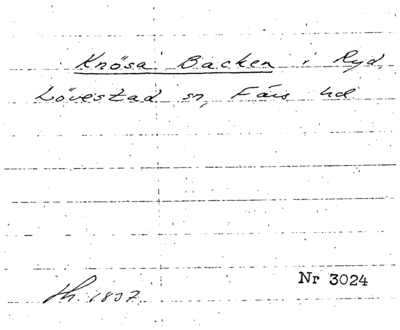 Knösa Backen i Ryd,
Lövestad sn, Färs hd
Nr 3024
Th. 1807